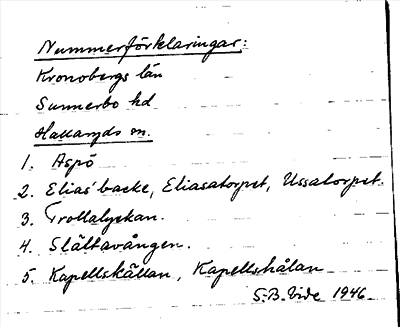 Nummerförklaringar:
Kronobergs län
Sunnerbo hd
Hallaryds sn.
1. Aspö
2. Elias' backe, Eliasatorpet, Ussatorpet.
3. Trollalyckan.
4. Slättavången.
5. Kapellskällan, Kapellshålan
S.B. Vide 1946.